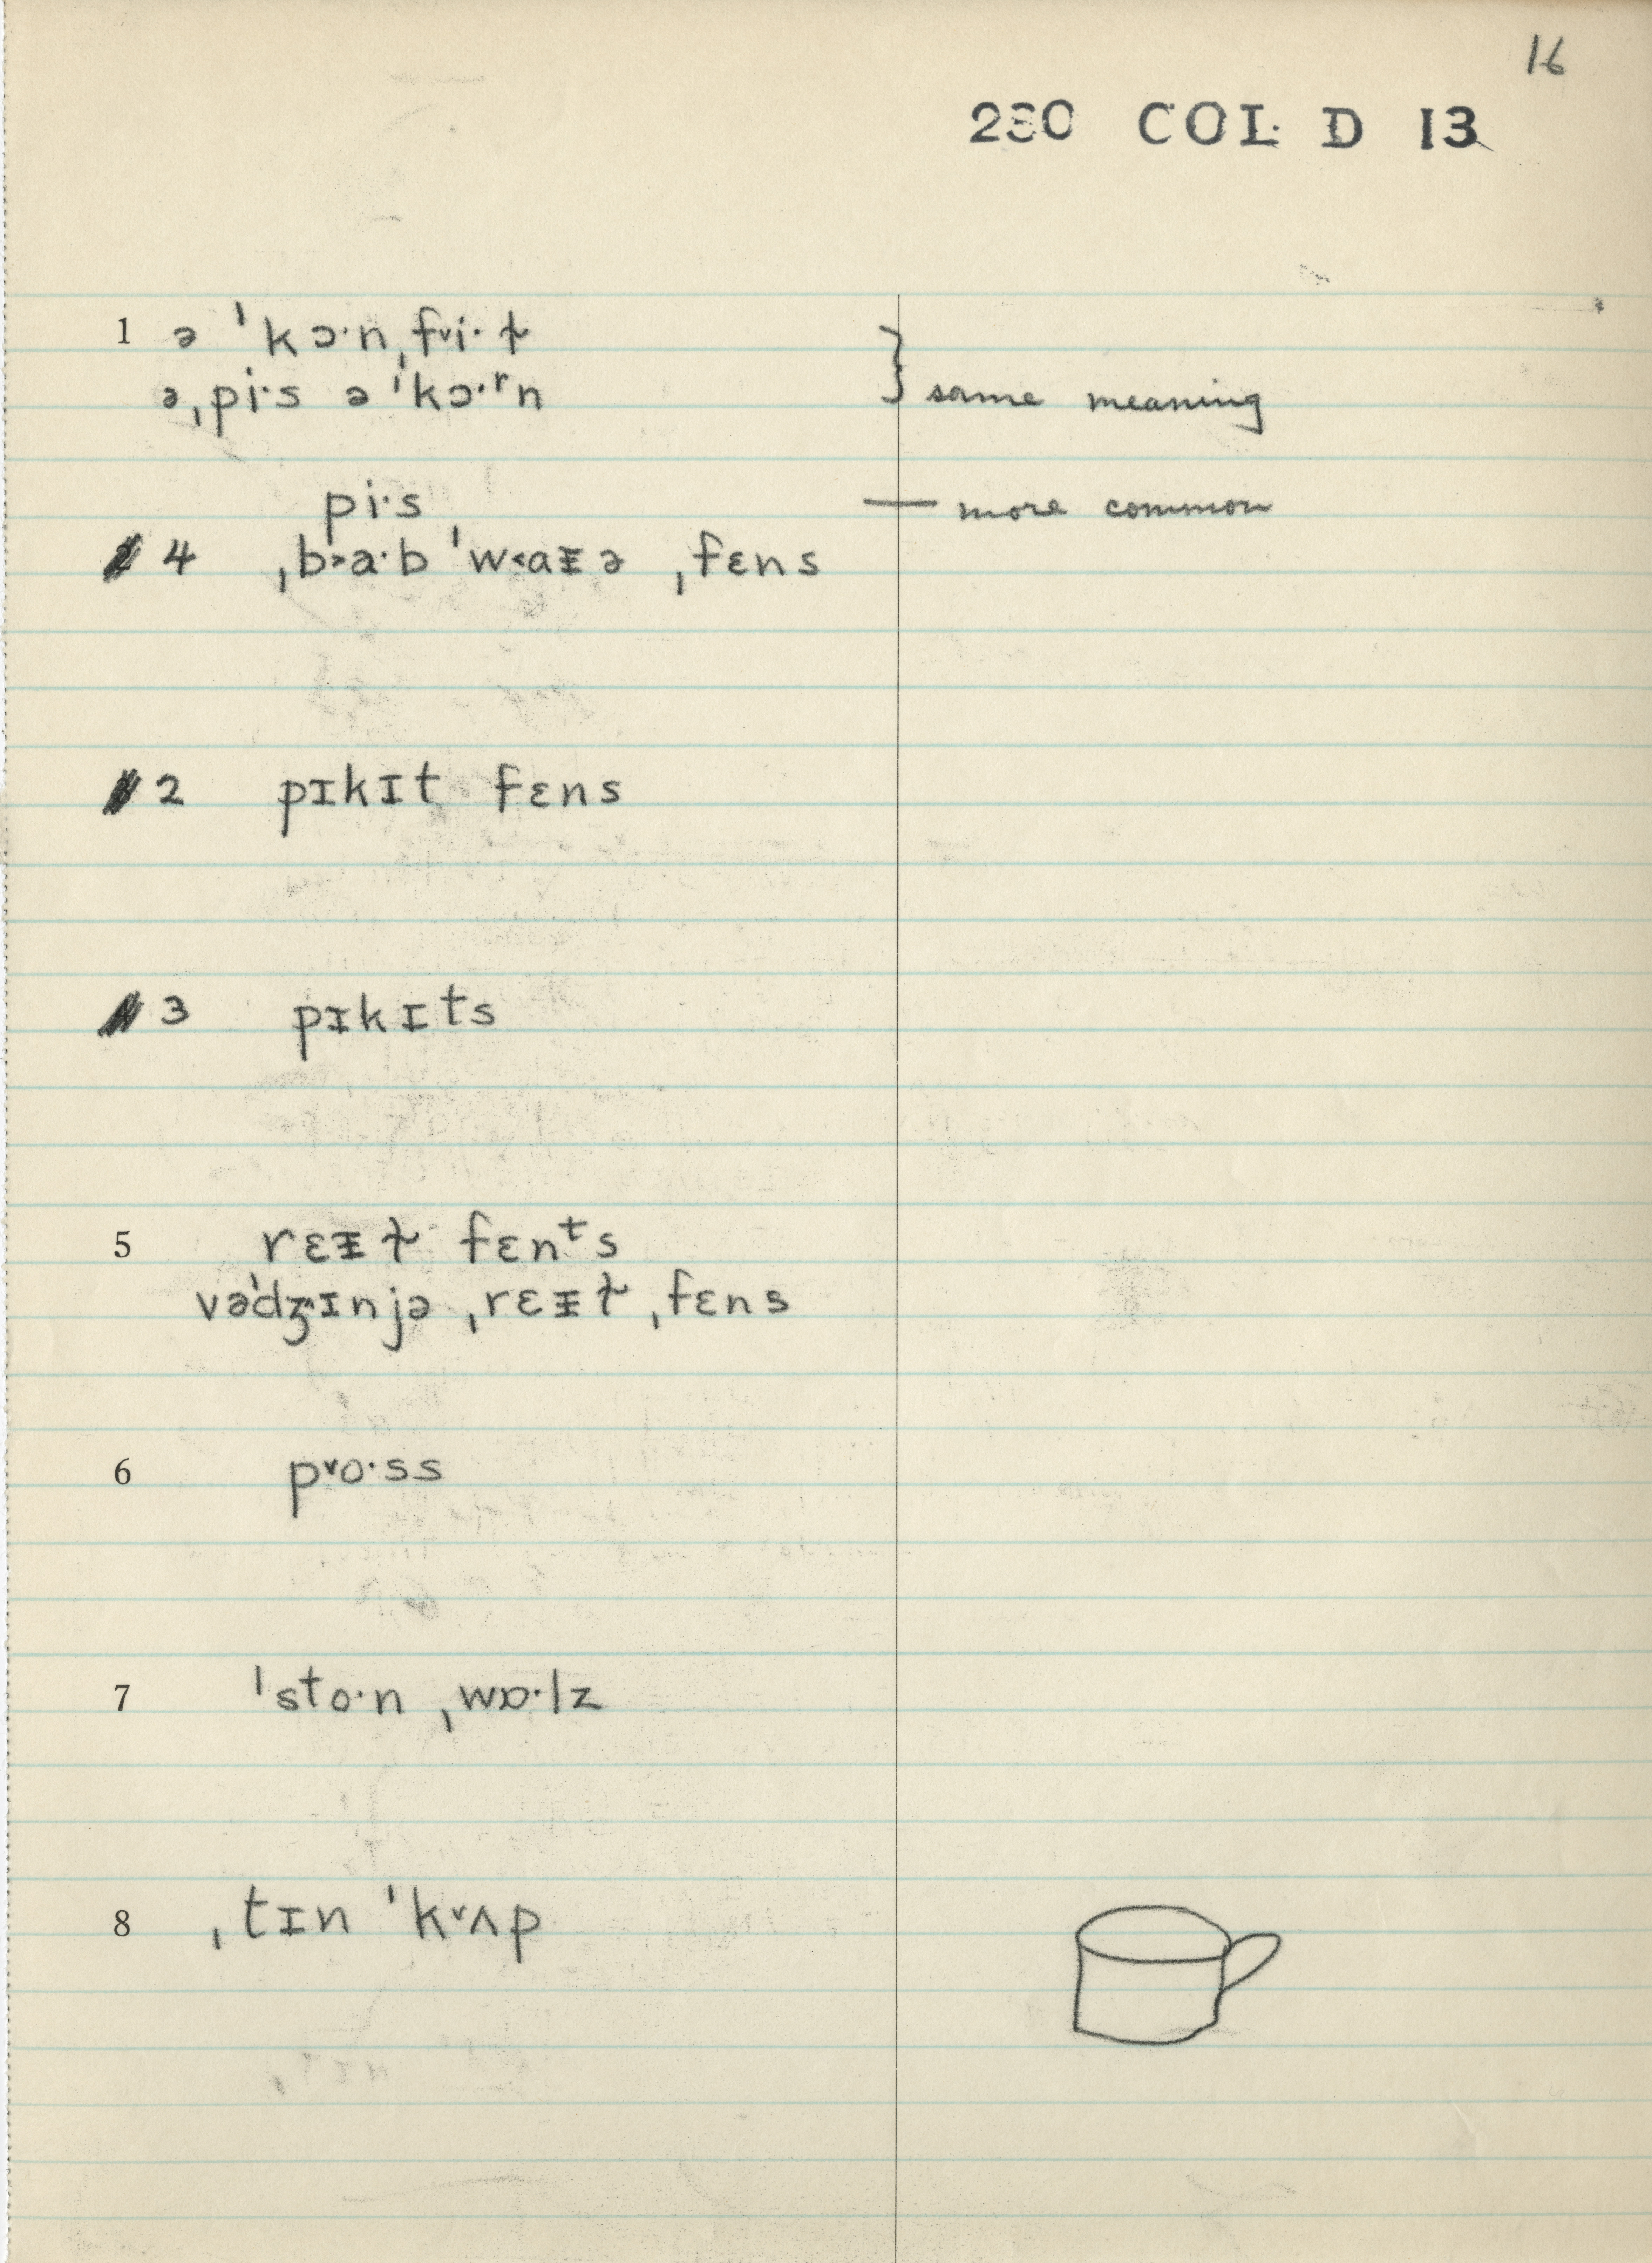 16
230 COL D 13
1 ə ˈkɔ·n ˌfᵛi·ɫ
ə ˌpi·s ə ˈkɔ·ʳn } same meaning
pi·s — more common
4 ˌb˃a·b ˈw˂aᵻə ˌfɛns
2 pɪkɪt fɛns
3 pɪkɪts
5 rɛᵻɫ fɛnᵗs
vəˈdʒ^ɪnjə ˌrɛᵻɫ ˌfɛns
6 pᵛo·ss
7 ˈsto·n ˌwɒ·lz
8 ˌtɪn ˈkᵛʌp